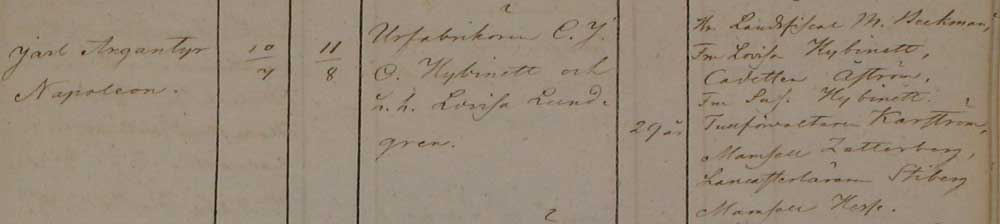 Jarl Argantyr
Napoleon.
10
7
11
8
Urfabrikören C. J.
C. Hybinett och
h. h. Lovisa Lund-
gren.
29 år
Hr Landsfiscal M. Beckman,
Fru Lovisa Hybinett,
Cadetten Åström,
Fru Sus. Hybinett.
Tullförvaltaren Karström,
Mamsell Zetterberg,
Lancasterläraren Stiberg
Mamsell Hesse.